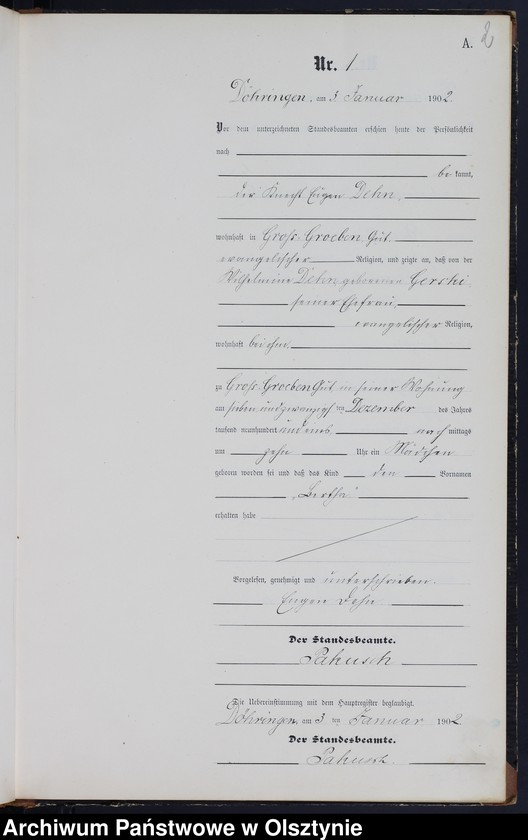 A. 2
Nr. 1
Döhringen, am 3. Januar 1902
Vor dem unterzeichneten Standesbeamten erschien heute der Persönlichkeit
nach
bekannt,
der Knecht Eugen Dehn,
wohnhaft in Groß Groeben Gut
evangelischer Religion, und zeigte an, daß von der
Wilhelmine Dehn, geborenen Gerski,
seiner Ehefrau,
evangelischer Religion,
wohnhaft bei ihm
zu Groß Groeben Gut in seiner Wohnung
am sieben und zwanzigsten Dezember des Jahres
tausend neunhundert und eins, nachmittags
um zehn Uhr ein Mädchen
geboren worden sei und daß das Kind den Vornamen
„Bertha"
erhalten habe
Vorgelesen, genehmigt und unterschrieben.
Eugen Dehn
Der Standesbeamte.
Pakusch
Die Uebereinstimmung mit dem Hauptregister beglaubigt.
Döhringen, am 3 ten Januar 1902
Der Standesbeamte.
Pakusch
Archiwum Państwowe w Olsztynie